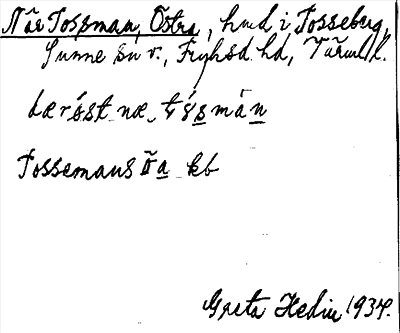 När Tossman, Östra, hmd i Tosseberg,
Sunne sn v., Fryksd. hd, Värml. l.
næ
Tossemans öa kb
Greta Hedin 1934.